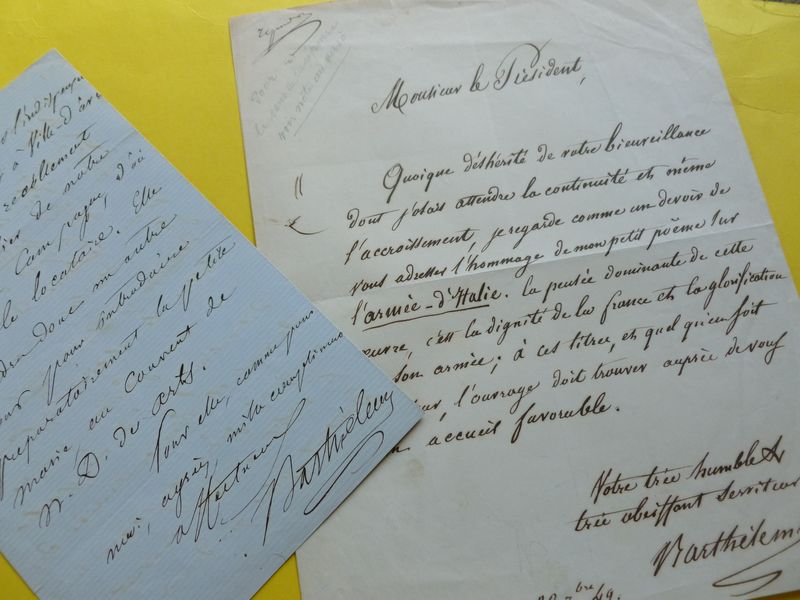 à Ville-d'av
de notre
campagne, d'où
le locataire. Elle
donc un autre
pour introduire
preparatoirement la petite
marie au couvent de
N. D. de arts.
Pour elle, comme pour
moi, agréez mille complimens
affectueux
Barthélemy
Pour
Monsieur le Président,
Quoique déshérité de votre bienveillance
dont j'osais attendre la continuité et même
l'accroissement, je regarde comme un devoir de
vous adresser l'hommage de mon petit poëme sur
l'armée-d'Italie. la pensée dominante de cette
œuvre, c'est la dignité de la france et la glorification
son armée; à ces titres, et quel qu'en soit
l'ouvrage doit trouver auprès de vous
accueil favorable.
Votre très humble et
très obéissant serviteur
Barthélemy
bre 49.